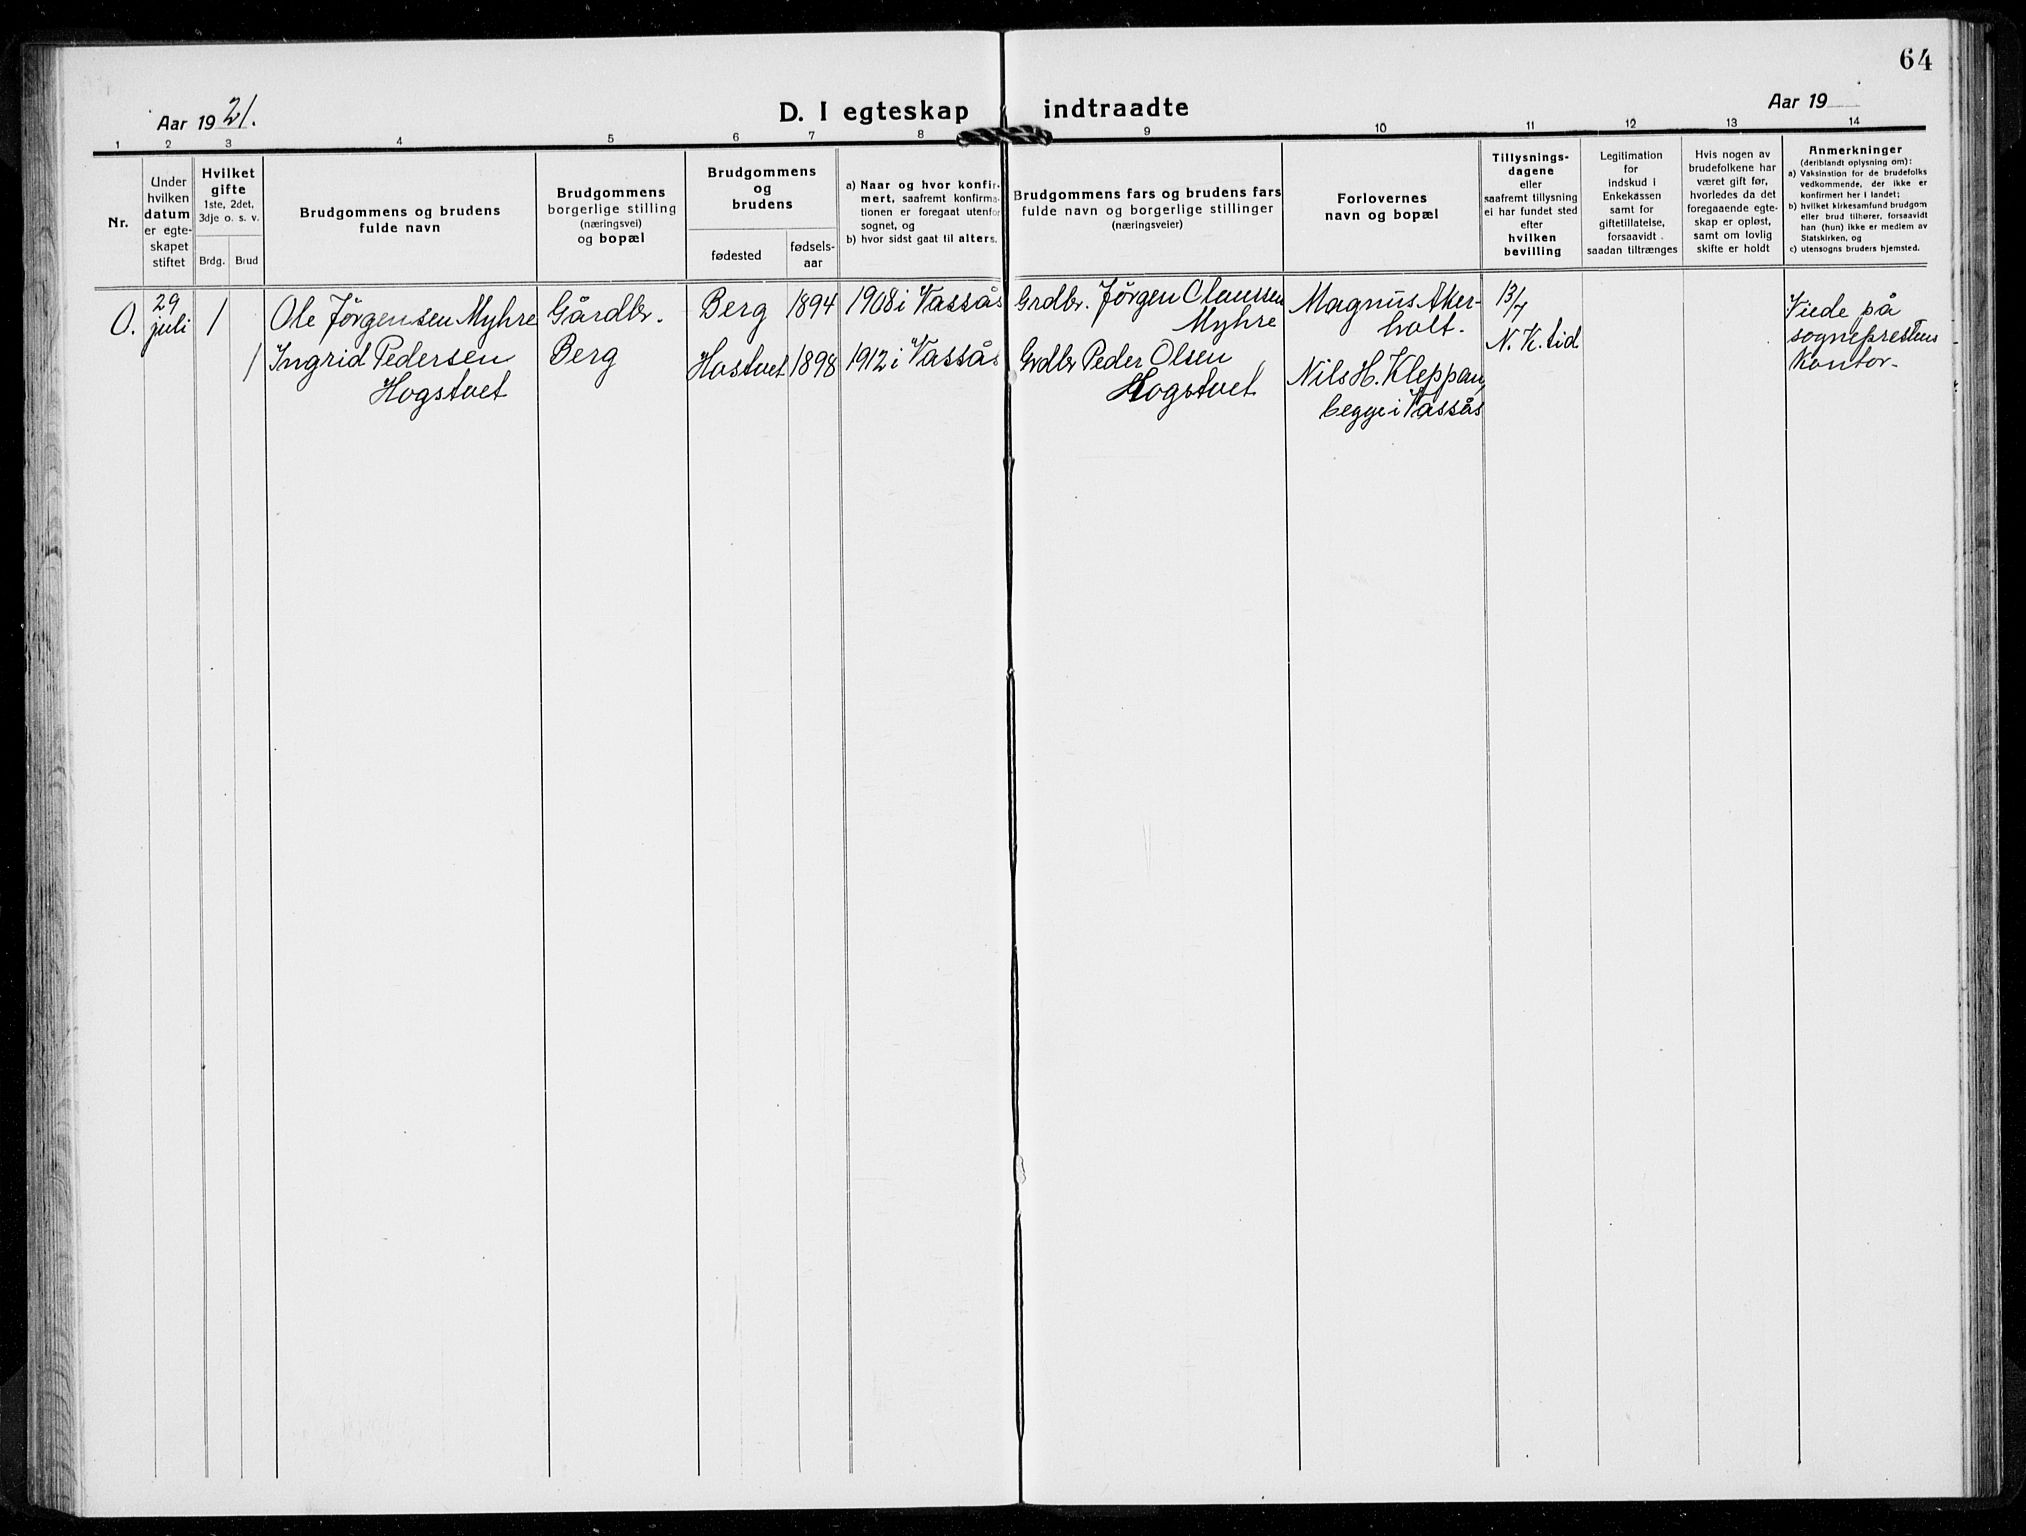 64
Aar 1921.
D. I egteskap indtraadte
Aar 19
1 2 3 4 5 6 7 8 9 10 11 12 13 14
Nr.
Under
hvilken
datum
er egte-
skapet
stiftet
Hvilket
gifte
1ste, 2det,
3dje o. s. v.
Brdg. Brud
Brudgommens og brudens
fulde navn
Brudgommens
borgerlige stilling
(næringsvei)
og bopæl
Brudgommens
og
brudens
fødested
fødsels-
aar
a) Naar og hvor konfir-
mert, saafremt konfirma-
tionen er foregaat utenfor
sognet, og
b) hvor sidst gaat til alters.
Brudgommens fars og brudens fars
fulde navn og borgerlige stillinger
(næringsveier)
Forlovernes
navn og bopæl
Tillysnings-
dagene
eller
saafremt tillysning
ei har fundet sted
efter
hvilken
bevilling
Legitimation
for
indskud i
Enkekassen
samt for
giftetillatelse,
forsaavidt
saadan tiltrænges
Hvis nogen av
brudefolkene har
været gift før,
hvorledes da det
foregaaende egte-
skap er opløst,
samt om lovlig
skifte er holdt
Anmerkninger
(deriblandt oplysning om):
a) Vaksination for de brudefolks
vedkommende, der ikke er
konfirmert her i landet;
b) hvilket kirkesamfund brudgom
eller brud tilhører, forsaavidt
han (hun) ikke er medlem av
Statskirken, og
c) utensogns bruders hjemsted.
O.
29
juli
1
Ole Jørgensen Myhre
Gårdbr.
Berg
1894
1908 i Vassås
Grdbr. Jørgen Claussen
Myhre
Magnus Aker-
holt.
13/7
N. K. tid
Viede på
sogneprestens
Kontor.
1
Ingrid Pedersen
Hogstvet
Berg
Hostvet
1898
1912 i Vassås
Grdbr Peder Olsen
Hogstvet
Nils H. Kleppan,
begge i Vassås